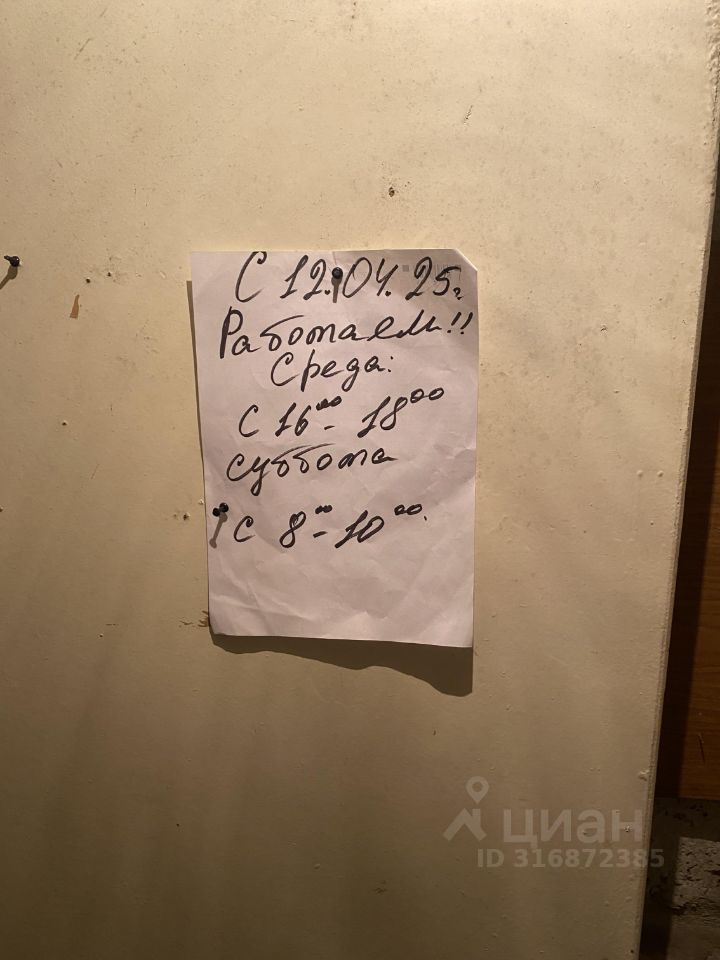 С 12.04.25г
Работаем!!
Среда:
С 16⁰⁰- 18⁰⁰
суббота
С 8⁰⁰- 10⁰⁰.
циан
ID 316872385